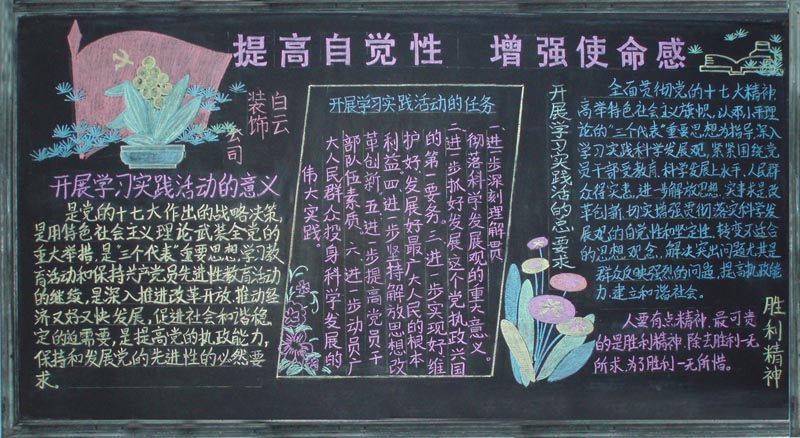 提高自觉性 增强使命感
白云
装饰
公司
开展学习实践活动的意义
是党的十七大作出的战略决策,
是用特色社会主义理论武装全党的
重大举措,是“三个代表”重要思想,学习教
育活动和保持共产党员先进性教育活动
的继续,是深入推进改革开放,推动经
济又好又快发展,促进社会和谐稳
定的迫需要,是提高党的执政能力,
保持和发展党的先进性的必然要
求。
开展学习实践活动的任务
一、进一步深刻理解贯
彻落科学发展观的重大意义
二、进一步抓好发展这个党执政兴国
的第一要务。三、进一步实现好维
护好发展好最广大人民的根本
利益、四、进一步坚持解放思想改
革创新、五、进一步提高党员干
部队伍素质、六、进一步动员广
大人民群众投身科学发展的
伟大实践。
开展学习实践活的总要求
全面贯彻党的十七大精神
高举特色社会主义旗帜,以邓小平理
论的“三个代表”重要思想为指导,深入
学习实践科学发展观,紧紧围绕党
员干部受教育,科学发展上水平,人民群
众得实惠,进一步解放思想,实事求是改
革创新,切实增强贯彻落实科学发
展观的自觉性和坚定性,转变不适合
的思想观念,解决突出问题尤其是
群众反映强烈的问题,提高执政能
力,建立和谐社会。
人要有点精神,最可贵
的是胜利精神,除去胜利一无
所求,为了胜利一无所惜。
胜利精神